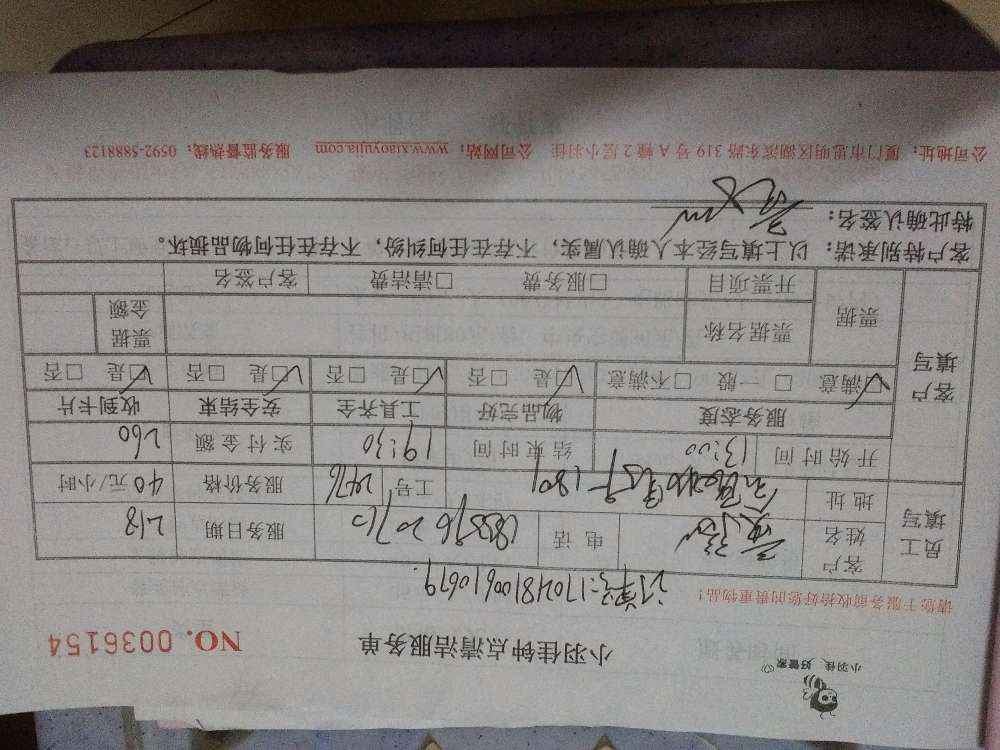 小羽佳 好管家
小羽佳钟点清洁服务单 NO. 0036154
请您于服务前收拾好您的贵重物品!
订单号:170248100610679.
员工填写 客户姓名 电话 服务日期 2.18
地址 1801 工号 2476 服务价格 40元/小时
开始时间 13:00 结束时间 19:30 实付金额 260
客户填写 服务态度 物品完好 工具齐全 安全结束 收到卡片
☑满意 □一般 □不满意 ☑是 □否 ☑是 □否 ☑是 □否 ☑是 □否
票据 票据名称 票据金额
开票项目 □服务费 □清洁费 客户签名
客户特别承诺:以上填写经本人确认属实,不存在任何纠纷,不存在任何物品损坏。
特此确认签名:
公司地址:厦门市思明区湖滨东路 319 号 A 幢 2 层小羽佳 公司网站:www.xiaoyujia.com 服务监督热线:0592-5888123